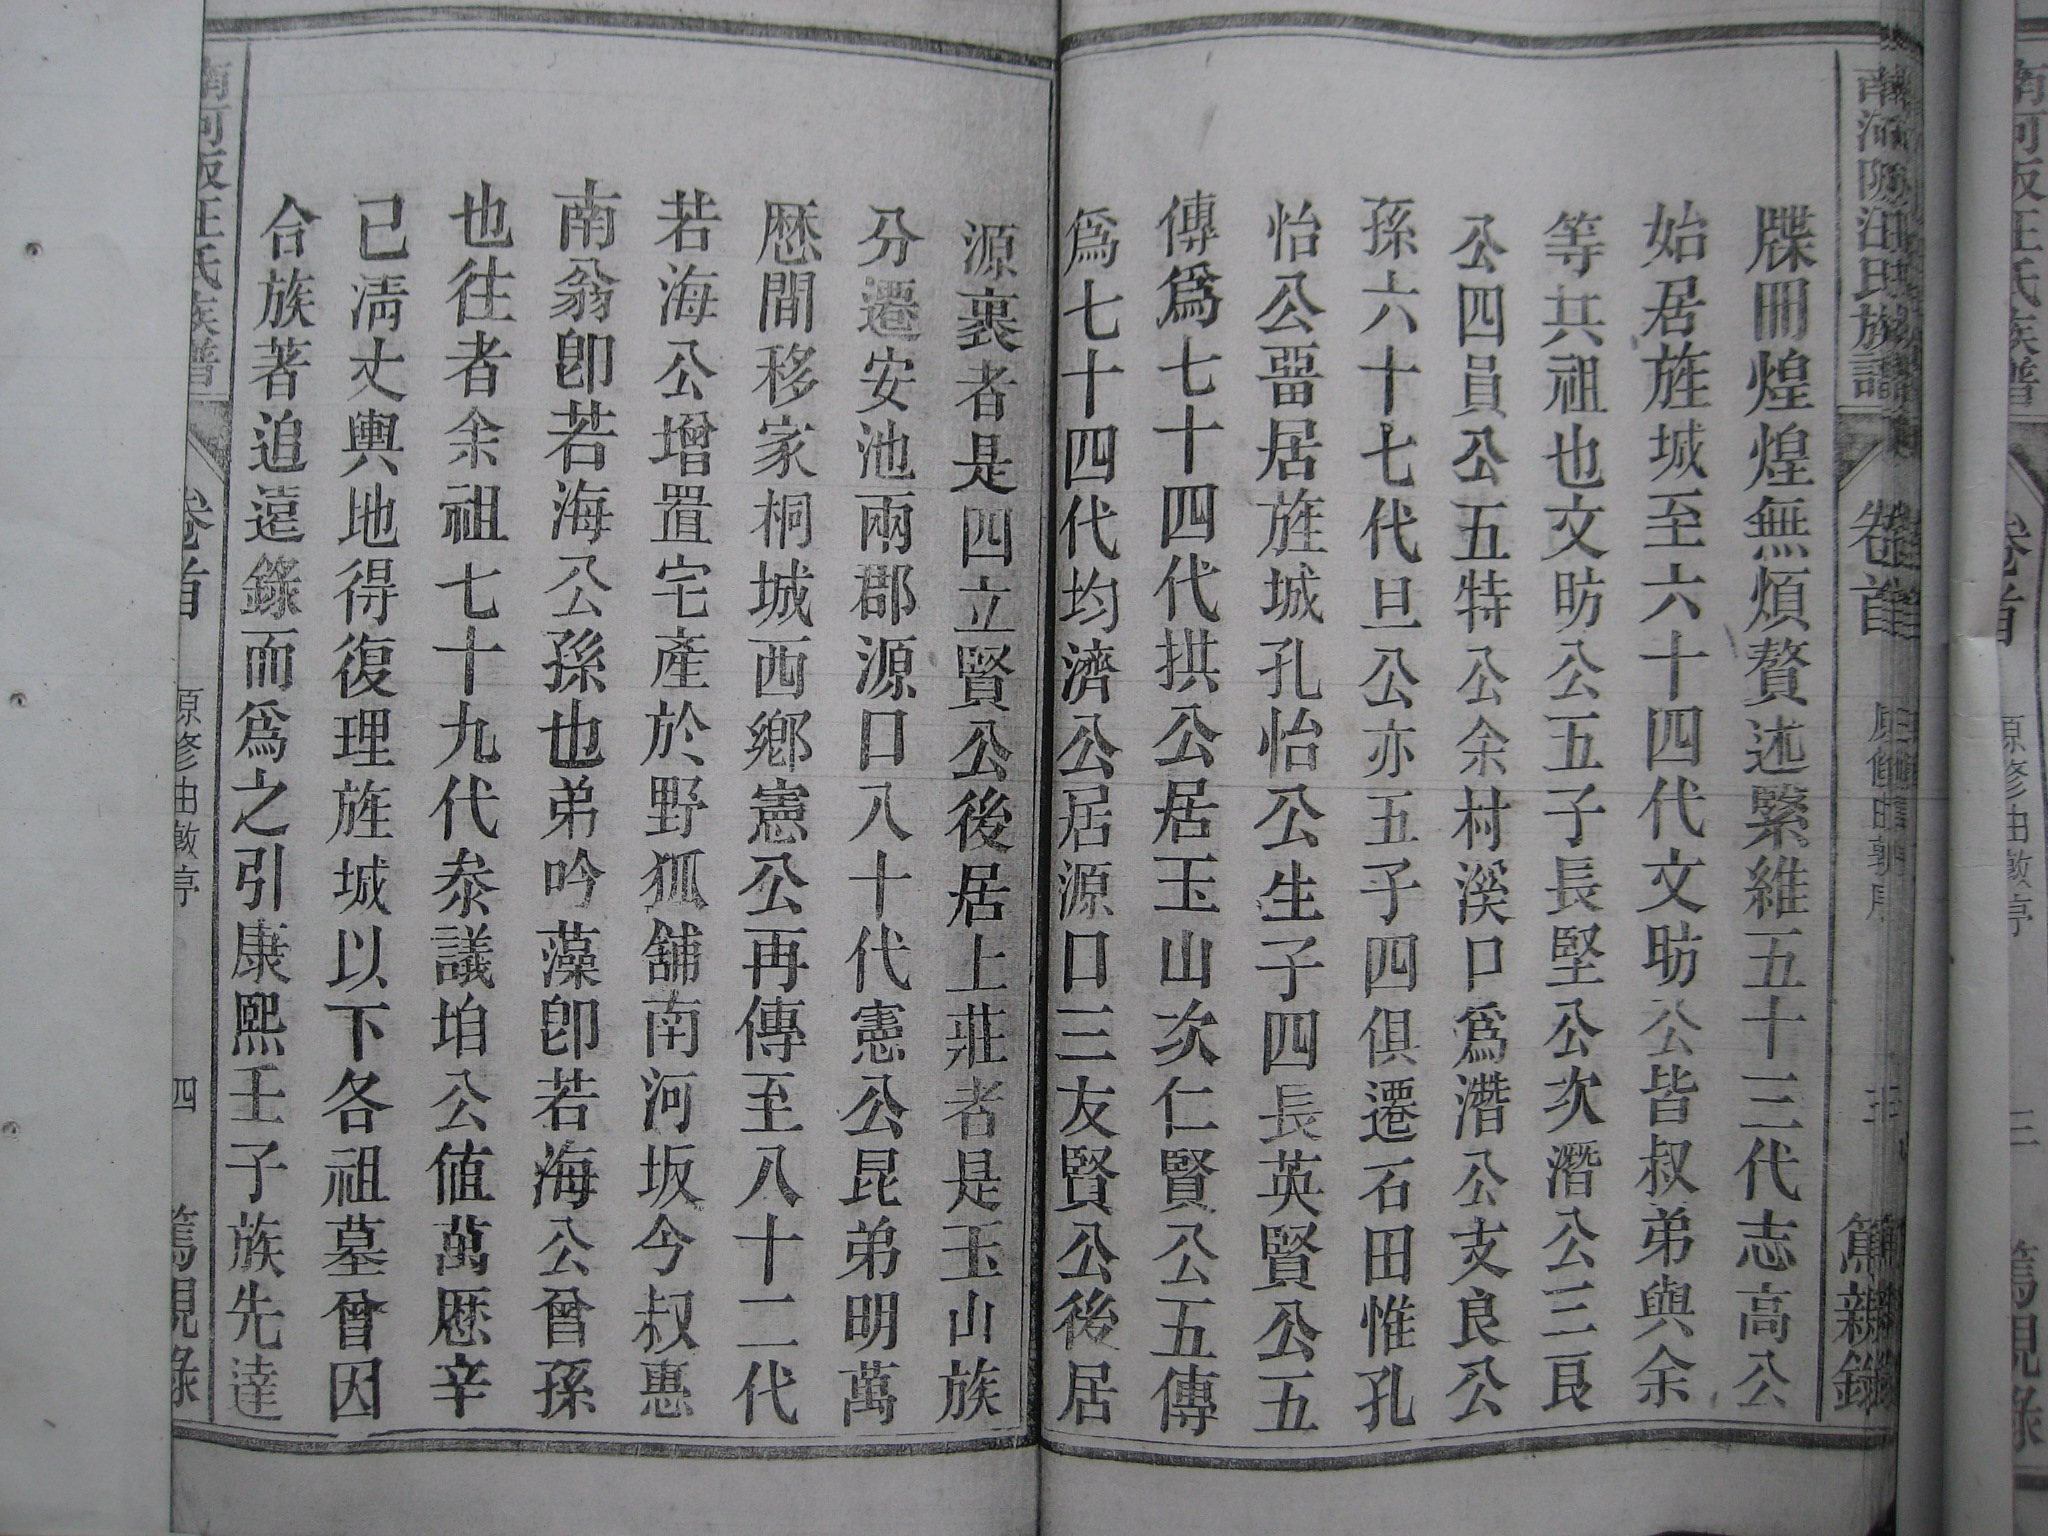 南河阪汪氏族譜 卷首 篤親錄
牒冊煌煌無煩贅述繄維五十三代志高公
始居旌城至六十四代文昉公皆叔弟與余
等共祖也文昉公五子長堅公次潛公三良
公四員公五特公余村溪口爲潛公支良公
孫六十七代旦公亦五子四俱遷石田惟孔
怡公畱居旌城孔怡公生子四長英賢公五
傳爲七十四代拱公居玉山次仁賢公五傳
爲七十四代均濟公居源口三友賢公後居
源裏者是四立賢公後居上莊者是玉山族
分遷安池兩郡源口八十代憲公昆弟明萬
厯間移家桐城西鄉憲公再傳至八十二代
若海公增置宅產於野狐舖南河坂今叔惠
南翁卽若海公孫也弟吟藻卽若海公曾孫
也往者余祖七十九代叅議垍公値萬厯辛
已淸丈輿地得復理旌城以下各祖墓曾因
合族著追遠錄而爲之引康熙壬子族先達
南河阪汪氏族譜 卷首 原修由敦亭 四 篤親錄
南河阪汪氏族譜 卷首 原修由敦亭 三 篤親錄